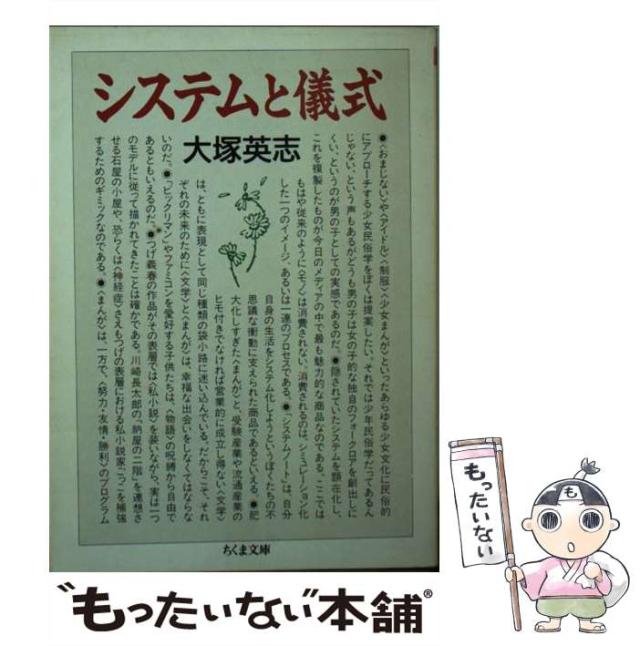 システムと儀式
大塚英志
●〈おまじない〉や〈アイドル〉〈制服〉〈少女まんが〉といったあらゆる少女文化に民俗的
にアプローチする少女民俗学をぼくは提案したい。それでは少年民俗学だってあるん
じゃない、という声もあるがどうも男の子は女の子的な独自のフォークロアを創出しに
くい、というのが男の子としての実感であるのだ。●隠されていたシステムを顕在化し、
これを複製したものが今日のメディアの中で最も魅力的な商品なのである。ここでは
もはや従来のように〈モノ〉は消費されない。消費されるのは、シミュレーション化
した一つのイメージ、あるいは一連のプロセスである。●「システムノート」は、自分
自身の生活をシステム化しようというぼくたちの不
思議な衝動に支えられた商品であるといえる。●肥
大化しすぎた〈まんが〉と、受験産業や流通産業の
ヒモ付きでなければ営業的に成立し得ない〈文学〉
は、ともに表現として同じ種類の袋小路に迷い込んでいる。だからこそ、それ
ぞれの未来のために〈文学〉と〈まんが〉は、幸福な出会いをしなくてはならな
いのだ。●「ビックリマン」やファミコンを愛好する子供たちは、〈物語〉の呪縛から自由で
あるともいえるのだ。●つげ義春の作品がその表層では〈私小説〉を装いながら、実は一つ
のモデルに従って描かれてきたことは確かである。川崎長太郎の「納屋の二階」を連想さ
せる石屋の小屋や、恐らくは〈神経症〉さえもつげの表層における私小説家ごっこを補強
するためのギミックなのである。●〈まんが〉は、一方で、〈努力・友情・勝利〉のプログラム
ちくま文庫
"もったいない"本舗®
も
もったいない